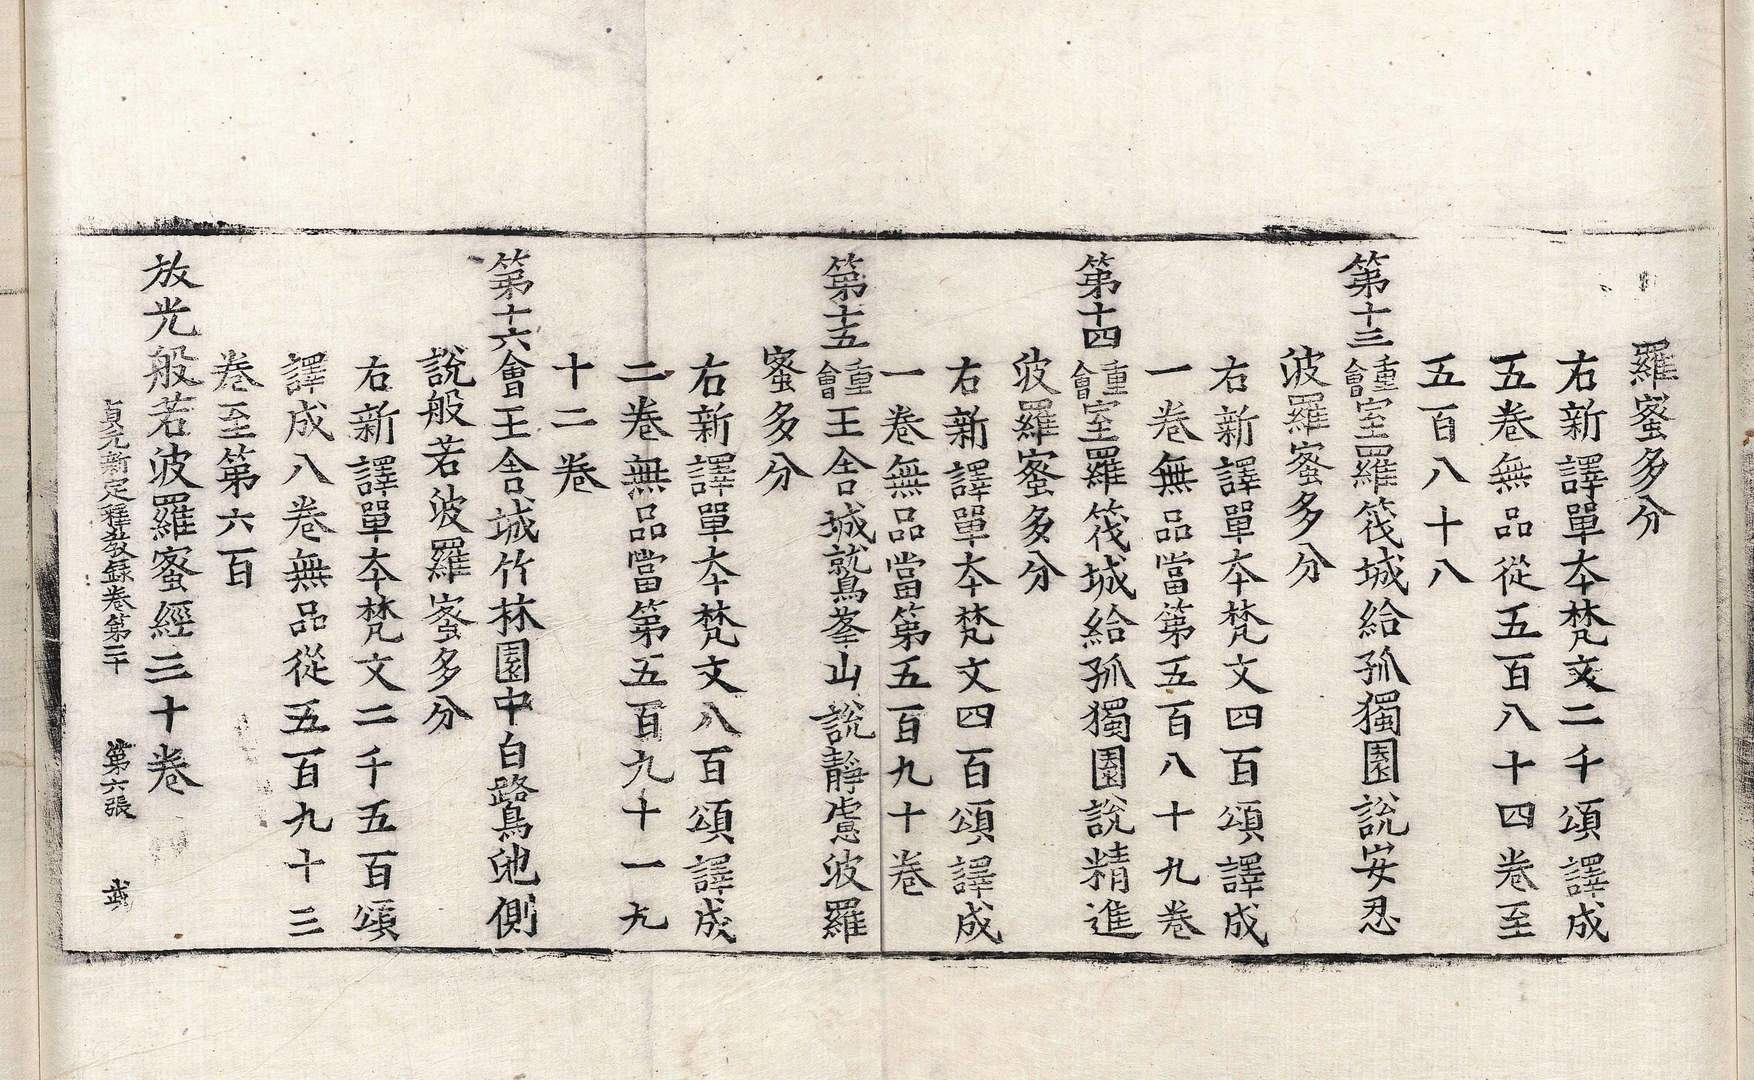 羅蜜多分
右新譯單夲梵文二千頌譯成
五卷無品從五百八十四卷至
五百八十八
第十三重會室羅筏城給孤獨園說安忍
波羅蜜多分
右新譯單夲梵文四百頌譯成
一卷無品當第五百八十九卷
第十四重會室羅筏城給孤獨園說精進
波羅蜜多分
右新譯單夲梵文四百頌譯成
一卷無品當第五百九十卷
第十五重會王舍城鷲峯山說靜慮波羅
蜜多分
右新譯單夲梵文八百頌譯成
二卷無品當第五百九十一九
十二卷
第十六會王舍城竹林園中白鷺池側
說般若波羅蜜多分
右新譯單夲梵文二千五百頌
譯成八卷無品從五百九十三
卷至第六百
放光般若波羅蜜經三十卷
貞元新定釋教錄卷第二十 第六張 武